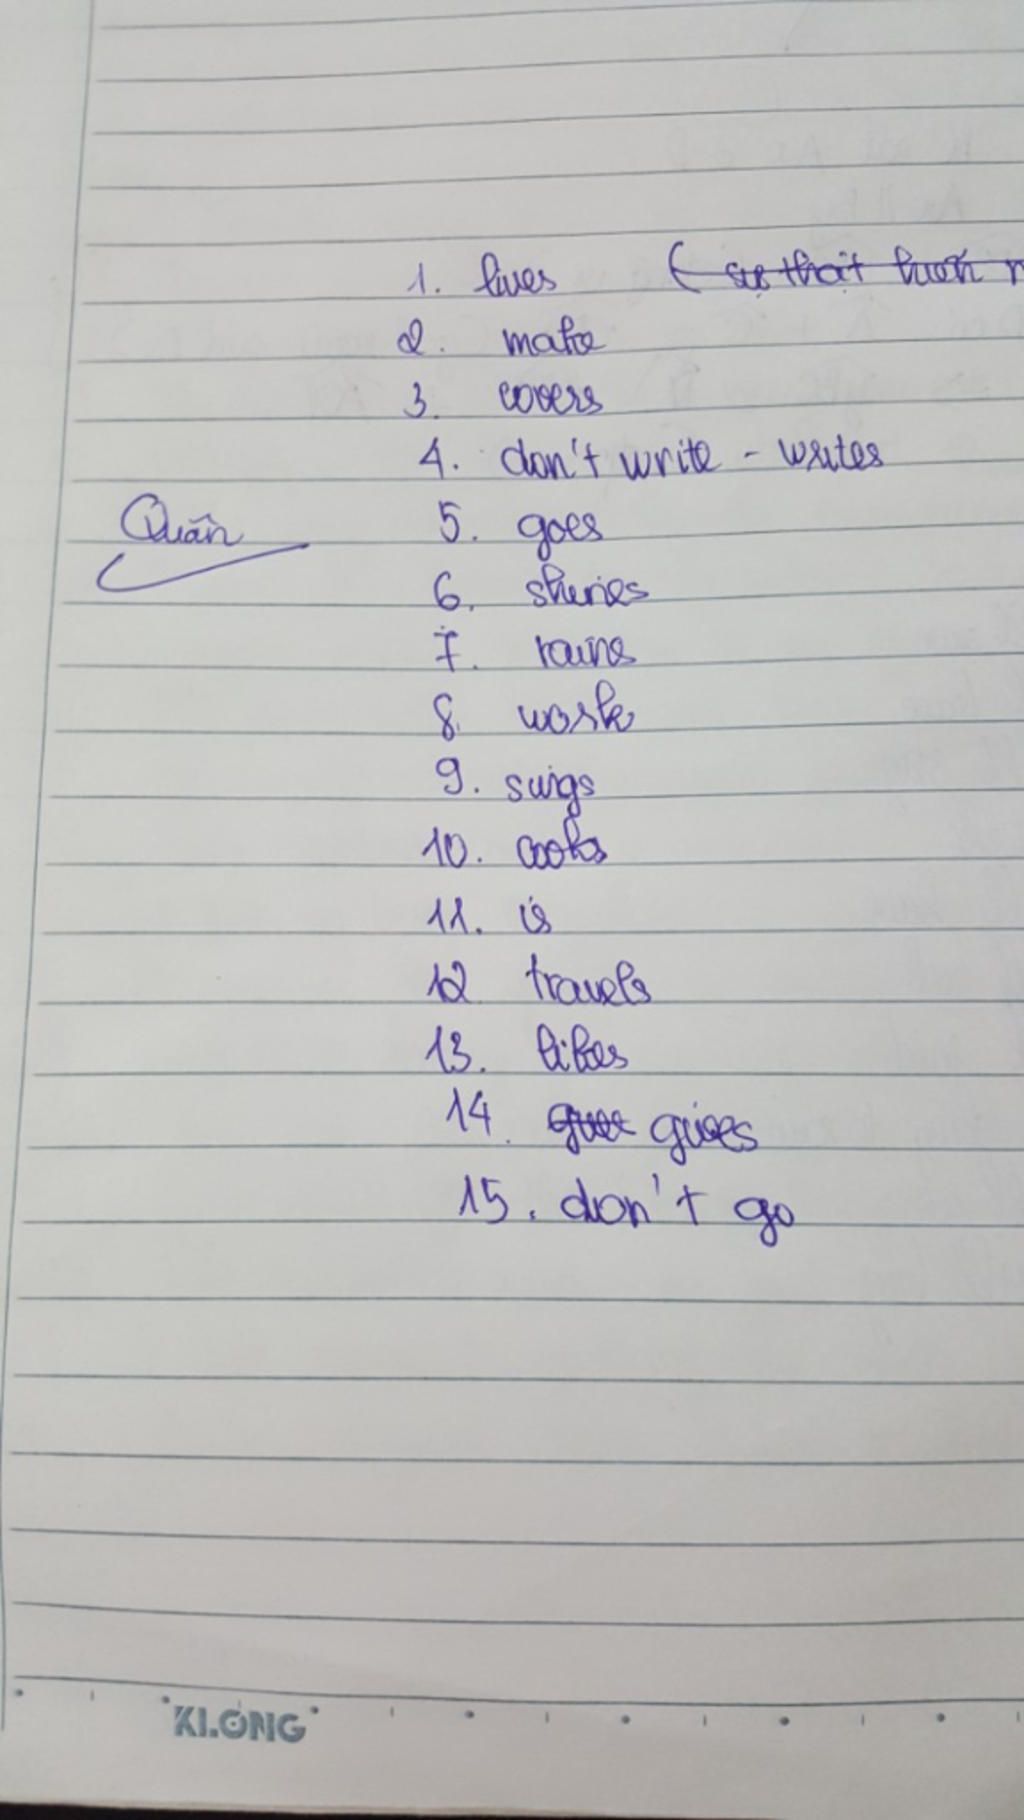 1. lives ( sự thật luôn
2. make
3. covers
4. don't write - writes
Quân 5. goes
6. shines
7. rains
8. work
9. sings
10. cooks
11. is
12 travels
13. likes
14. gives
15. don't go
KLONG